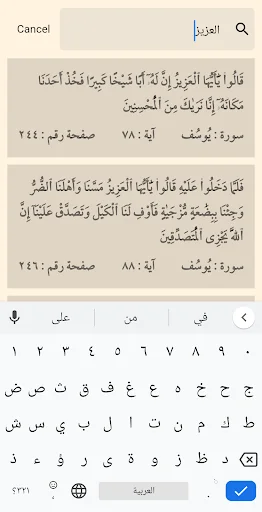 Cancel العزيز
قَالُوا۟ يَٰٓأَيُّهَا ٱلْعَزِيزُ إِنَّ لَهُۥٓ أَبًا شَيْخًا كَبِيرًا فَخُذْ أَحَدَنَا
مَكَانَهُۥٓ إِنَّا نَرَىٰكَ مِنَ ٱلْمُحْسِنِينَ
سورة : يُوسُف آية : ٧٨ صفحة رقم : ٢٤٤
فَلَمَّا دَخَلُوا۟ عَلَيْهِ قَالُوا۟ يَٰٓأَيُّهَا ٱلْعَزِيزُ مَسَّنَا وَأَهْلَنَا ٱلضُّرُّ
وَجِئْنَا بِبِضَٰعَةٍ مُّزْجَىٰةٍ فَأَوْفِ لَنَا ٱلْكَيْلَ وَتَصَدَّقْ عَلَيْنَآ إِنَّ
ٱللَّهَ يَجْزِى ٱلْمُتَصَدِّقِينَ
سورة : يُوسُف آية : ٨٨ صفحة رقم : ٢٤٦
في من على
١ ٢ ٣ ٤ ٥ ٦ ٧ ٨ ٩ ٠
ض ص ث ق ف غ ع ه خ ح ج
ش س ي ب ل ا ت ن م ك ط
ذ ء ؤ ر ى ة و ز ظ د
٣٢١؟ العربية .